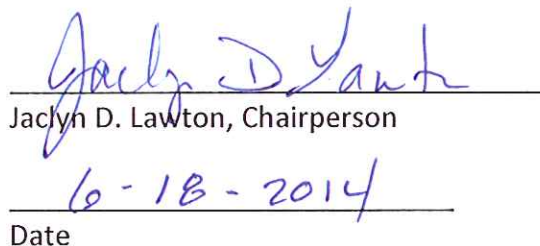 Jaclyn D Lawton
Jaclyn D. Lawton, Chairperson
6-18-2014
Date